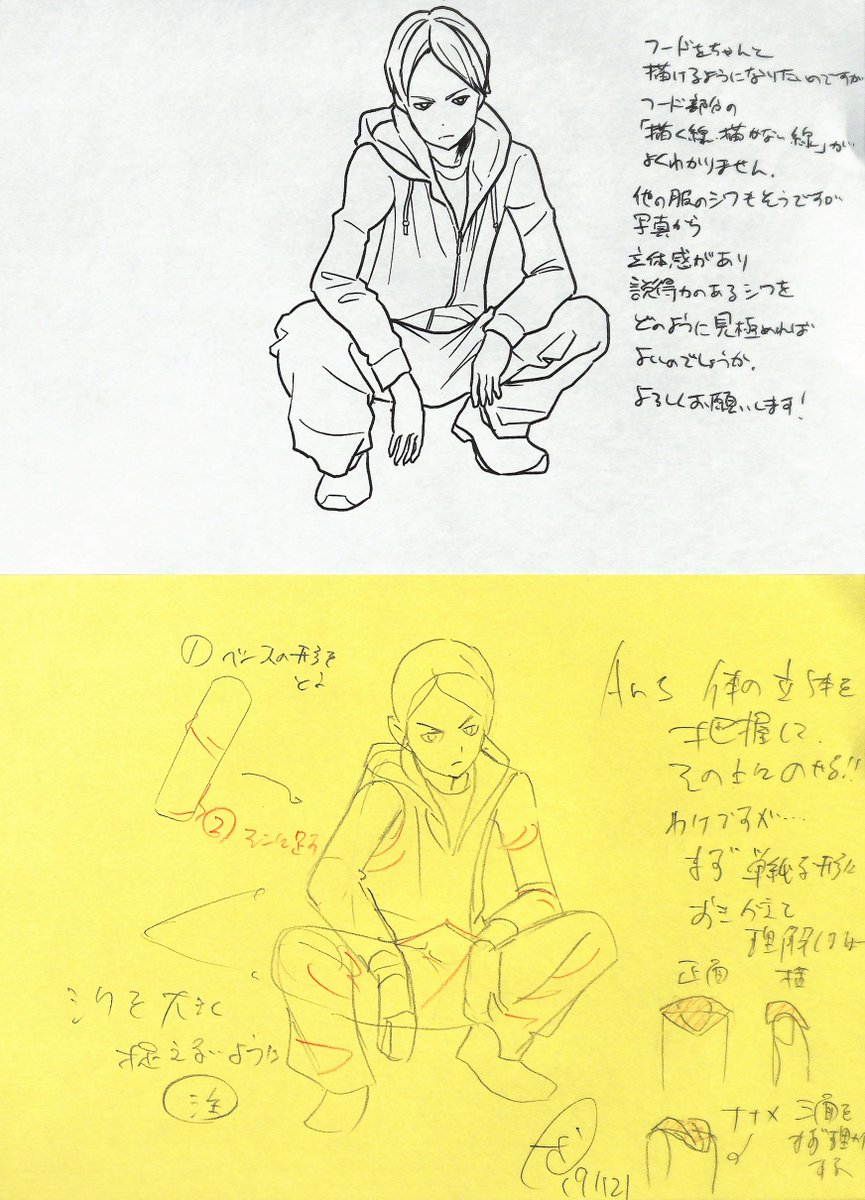 フードをちゃんと
描けるようになりたいのですが
フード部分の
「描く線、描かない線」が
よくわかりません。
他の服のシワもそうですが
写真から
立体感があり
説得力のあるシワを
どのように見極めれば
よいのでしょうか。
よろしくお願いします!
① ベースの形を
とる
② そこに足す
Ans 体の立体を
把握して、
その上にのせる!!
わけですが…
まず単純な形に
おきかえて
理解しては
正面 横
シワを大きく
捉えないように
注
ナナメ 三面を
まず理解
する
9/12)